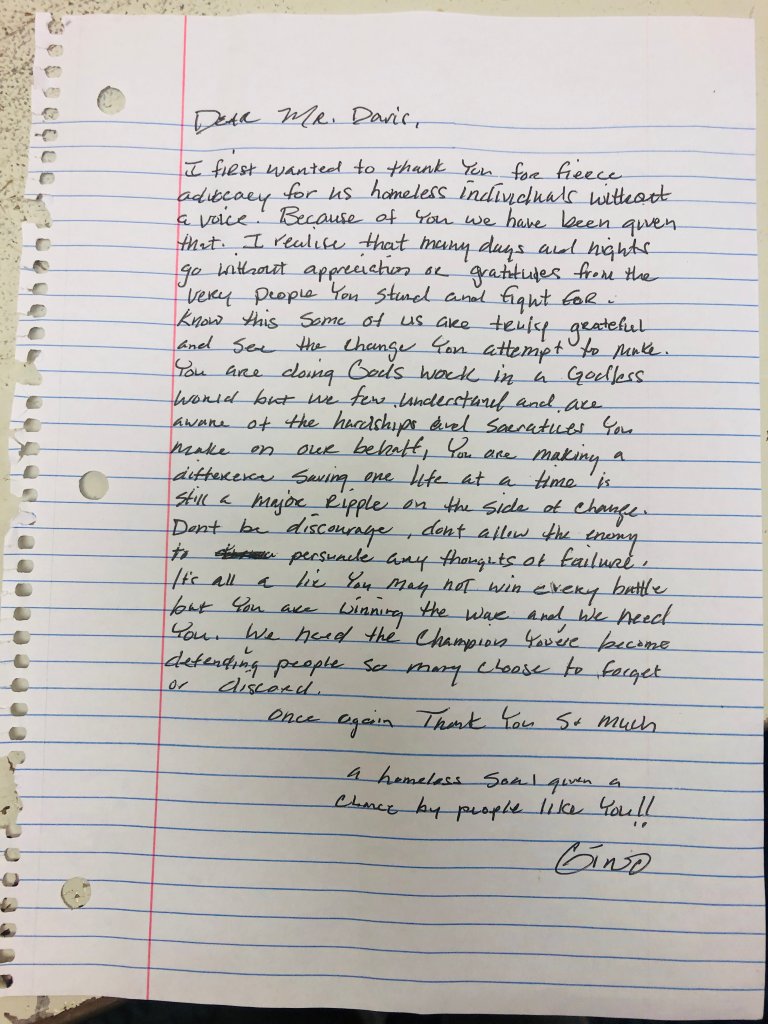 Dear Mr. Davis,
I first wanted to thank You for fierce
advocacy for us homeless individuals without
a voice. Because of You we have been given
that. I realise that many days and nights
go without appreciation or gratitudes from the
very people You stand and fight for.
Know this some of us are truly grateful
and see the change You attempt to make.
You are doing Gods work in a Godless
world but we few understand and are
aware of the hardships and You
make on our behalf, You are making a
difference saving one life at a time is
still a major Ripple on the side of change.
Dont be discourage, dont allow the enemy
to persuade any thoughts of failure.
Its all a lie You may not win every battle
but You are winning the war and we need
You. We need the Champion You've become
defending people so many choose to forget
or discard.
Once again Thank You So much
a homeless soul given a
chance by people like You!!
Gino